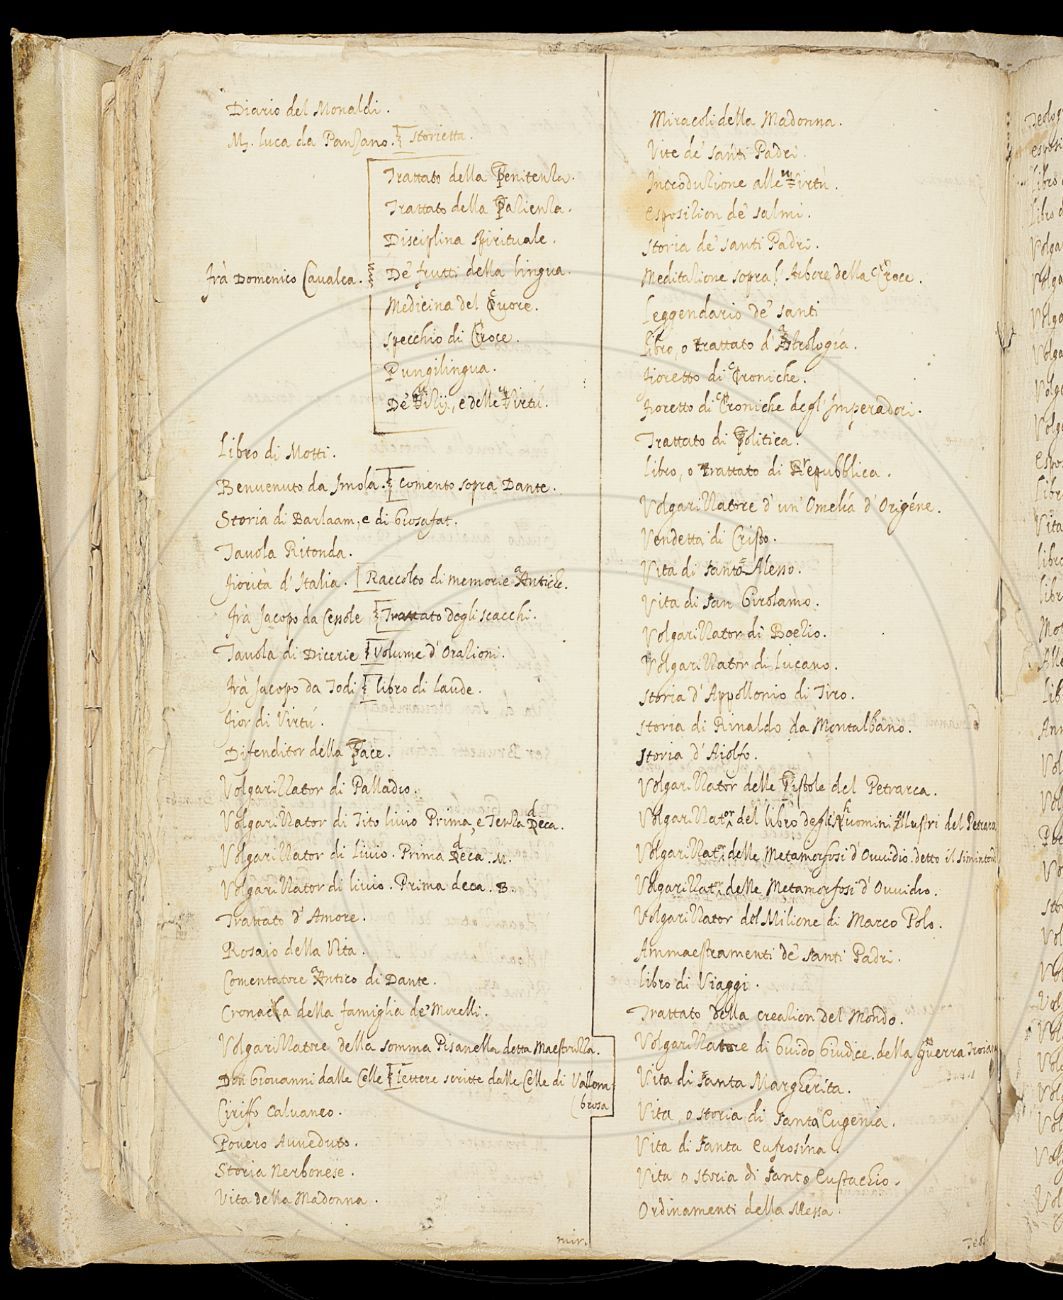 Diario del Monaldi.
Mr. luca da Panzano. storietta.
Trattato della Penitenza.
Trattato della Pazienza.
Disciplina spirituale.
Frà Domenico Cavalca. De' frutti della lingua.
Medicina del Cuore.
Specchio di Croce.
Pungilingua.
De' Vizij, e delle Virtú.
Libro di Motti.
Benvenuto da Imola. Comento sopra Dante.
Storia di Barlaam, e di Giosafat.
Tavola Ritonda.
Fiorità d'Italia. Raccolto di memorie Antiche.
Frà Jacopo da Cessole Trattato degli scacchi.
Tavola di Dicerie Volume d'Orazioni.
Frà Jacopo da Todi libro di Laude.
Fior di Virtú.
Difenditor della Pace.
Volgarizzator di Palladio.
Volgarizzator di Tito livio Prima, e Terza Deca.
Volgarizzator di livio. Prima Deca. M.
Volgarizzator di livio. Prima deca. B.
Trattato d'Amore.
Rosaio della Vita.
Comentatore Antico di Dante.
Cronaca della famiglia de' Morelli.
Volgarizzatore della somma Pisanella detta Maestruzza.
Don Giovanni dalle Celle lettere scritte dalle Celle di Vallom
brosa
Ciriffo Calvaneo.
Povero Avveduto.
Storia Nerbonese.
Vita della Madonna.
mir.
Miracoli della Madonna.
Vite de' santi Padri.
Introduzione alle Virtú.
Esposizion de' salmi.
Storia de' santi Padri.
Meditazione sopra l'Arbore della Croce.
Leggendario de' santi
Libro, o trattato d'Astrologia.
Fioretto di Croniche.
Fioretto di Croniche degl'Imperadori.
Trattato di Politica.
Libro, o trattato di Repubblica.
Volgarizzatore d'un'Omelía d'Origéne.
Vendetta di Cristo.
Vita di santo Alesso.
Vita di san Girolamo.
Volgarizzator di Boezio.
Volgarizzator di Lucano.
Storia d'Appollonio di Tiro.
Storia di Rinaldo da Montalbano.
Storia d'Aiolfo.
Volgarizzator delle Pistole del Petrarca.
Volgarizzator del libro degli huomini Illustri del Petrarca
Volgarizzator delle Metamorfosi d'Ouvidio. detto il simintendi
Volgarizzator delle Metamorfosi d'Ouvidio.
Volgarizzator del Milione di Marco Polo.
Ammaestramenti de' santi Padri.
Libro di Viaggi.
Trattato della creazion del Mondo.
Volgarizzatore di Guido Giudice della Guerra Troiana
Vita di santa Margherita.
Vita o storia di santa Eugenia.
Vita di santa Eufrosina.
Vita o storia di santo Eustachio.
Ordinamenti della Messa.